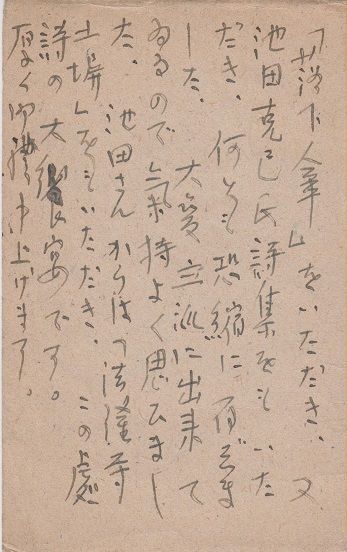 「落下傘」をいただき、又
池田克己氏詩集をもいた
だき、何とも恐縮に存じま
した、大変立派に出来て
ゐるので気持よく思ひまし
た、池田さんからは「法隆寺
土塀」をもいただき、この處
詩の大饗宴です。
厚く御禮申上げます。